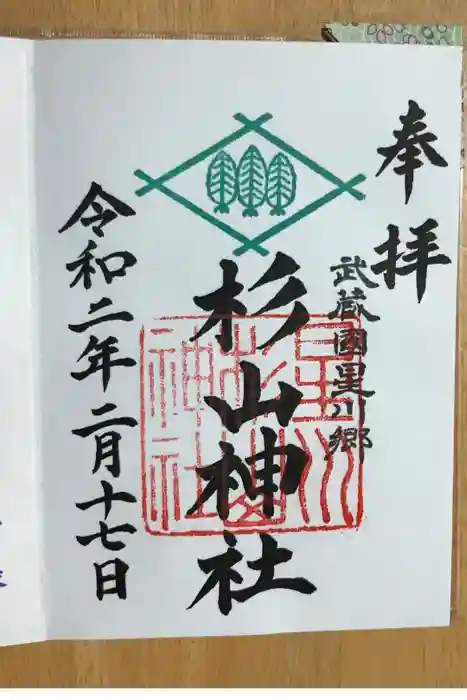 奉拝
武蔵國星川郷
杉山神社
星川
杉山
神社
令和二年二月十七日